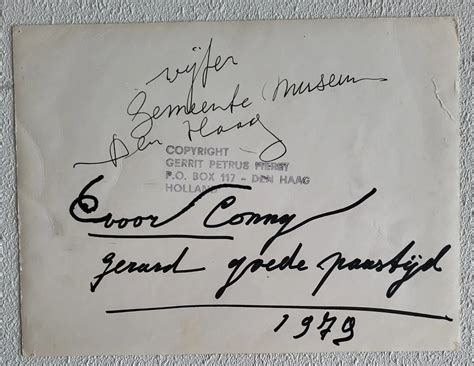 vijfer
Gemeente Museum
Den Haag
COPYRIGHT
GERRIT PETRUS
P.O. BOX 117 - DEN HAAG
HOLLAND
voor Conny
gerard goede paastijd
1979